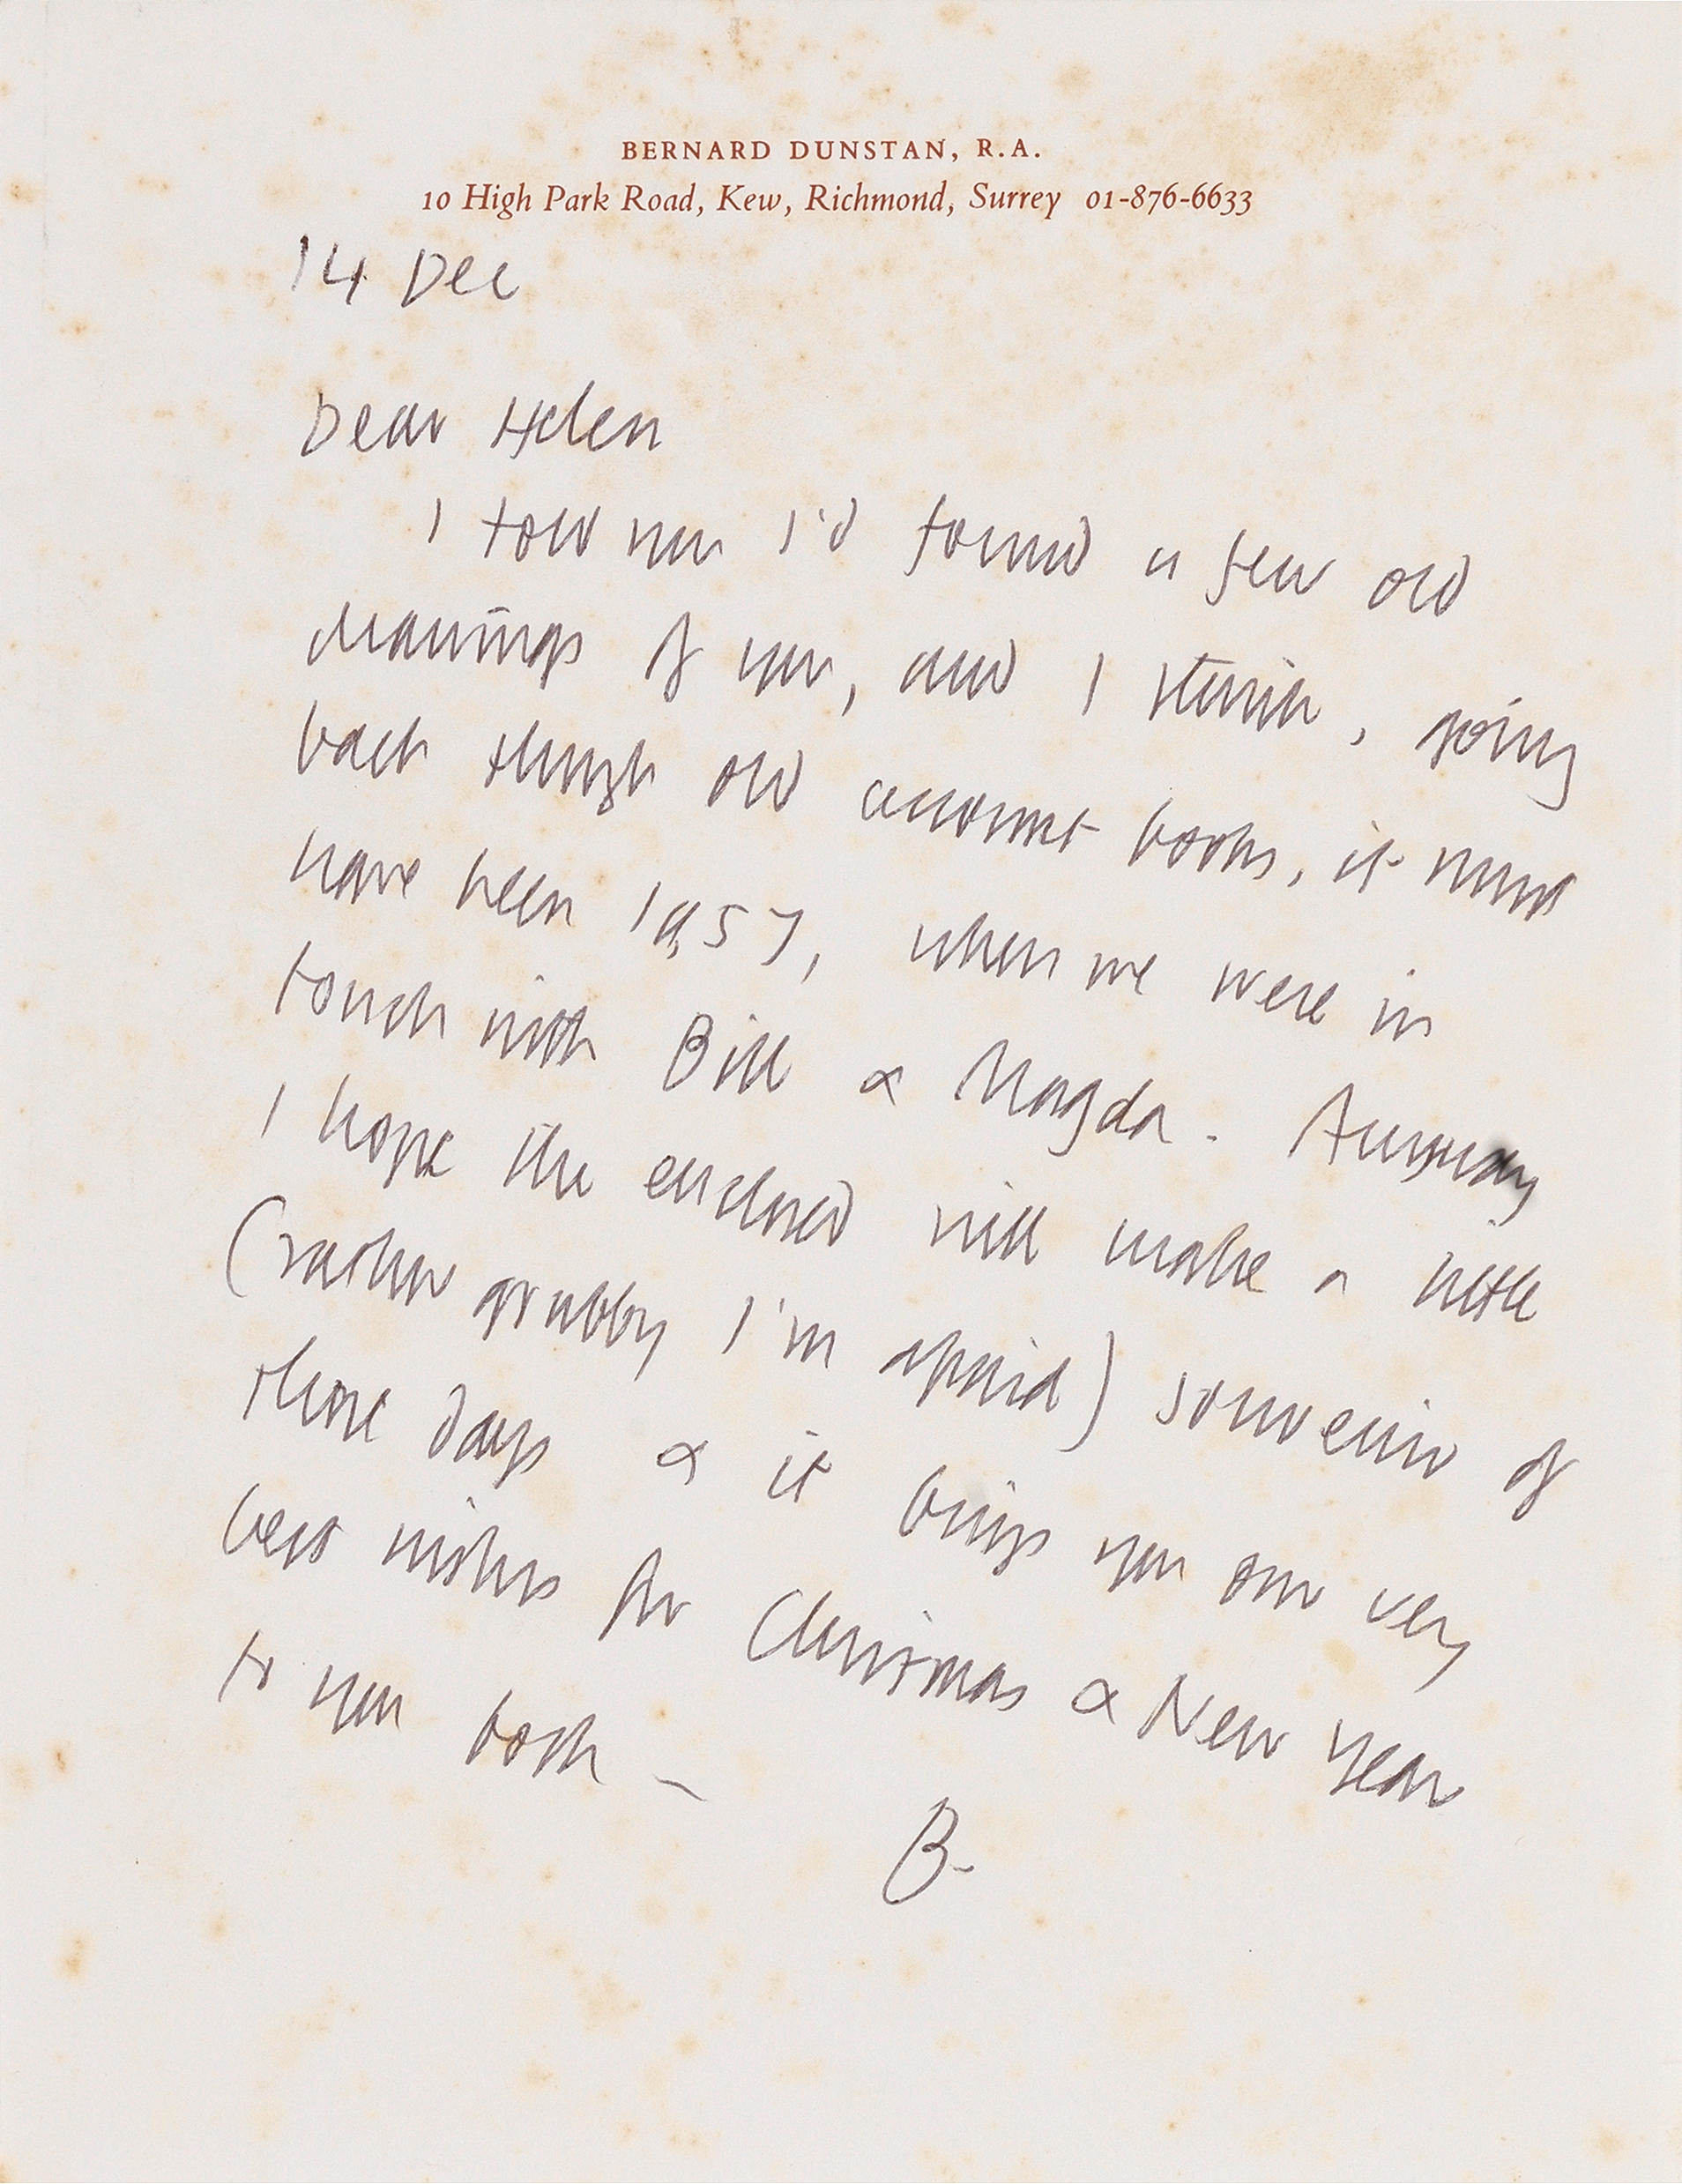 BERNARD DUNSTAN, R.A.
10 High Park Road, Kew, Richmond, Surrey 01-876-6633
14 Dec
Dear Helen
I told you I'd found a few old
drawings of you, and I think, going
back through old account books, it must
have been 1957, when we were in
touch with Bill & Magda. Anyway
I hope the enclosed will make a little
(rather grubby I'm afraid) souvenir of
those days & it brings you our very
best wishes for Christmas & New Year
to you both –
B.